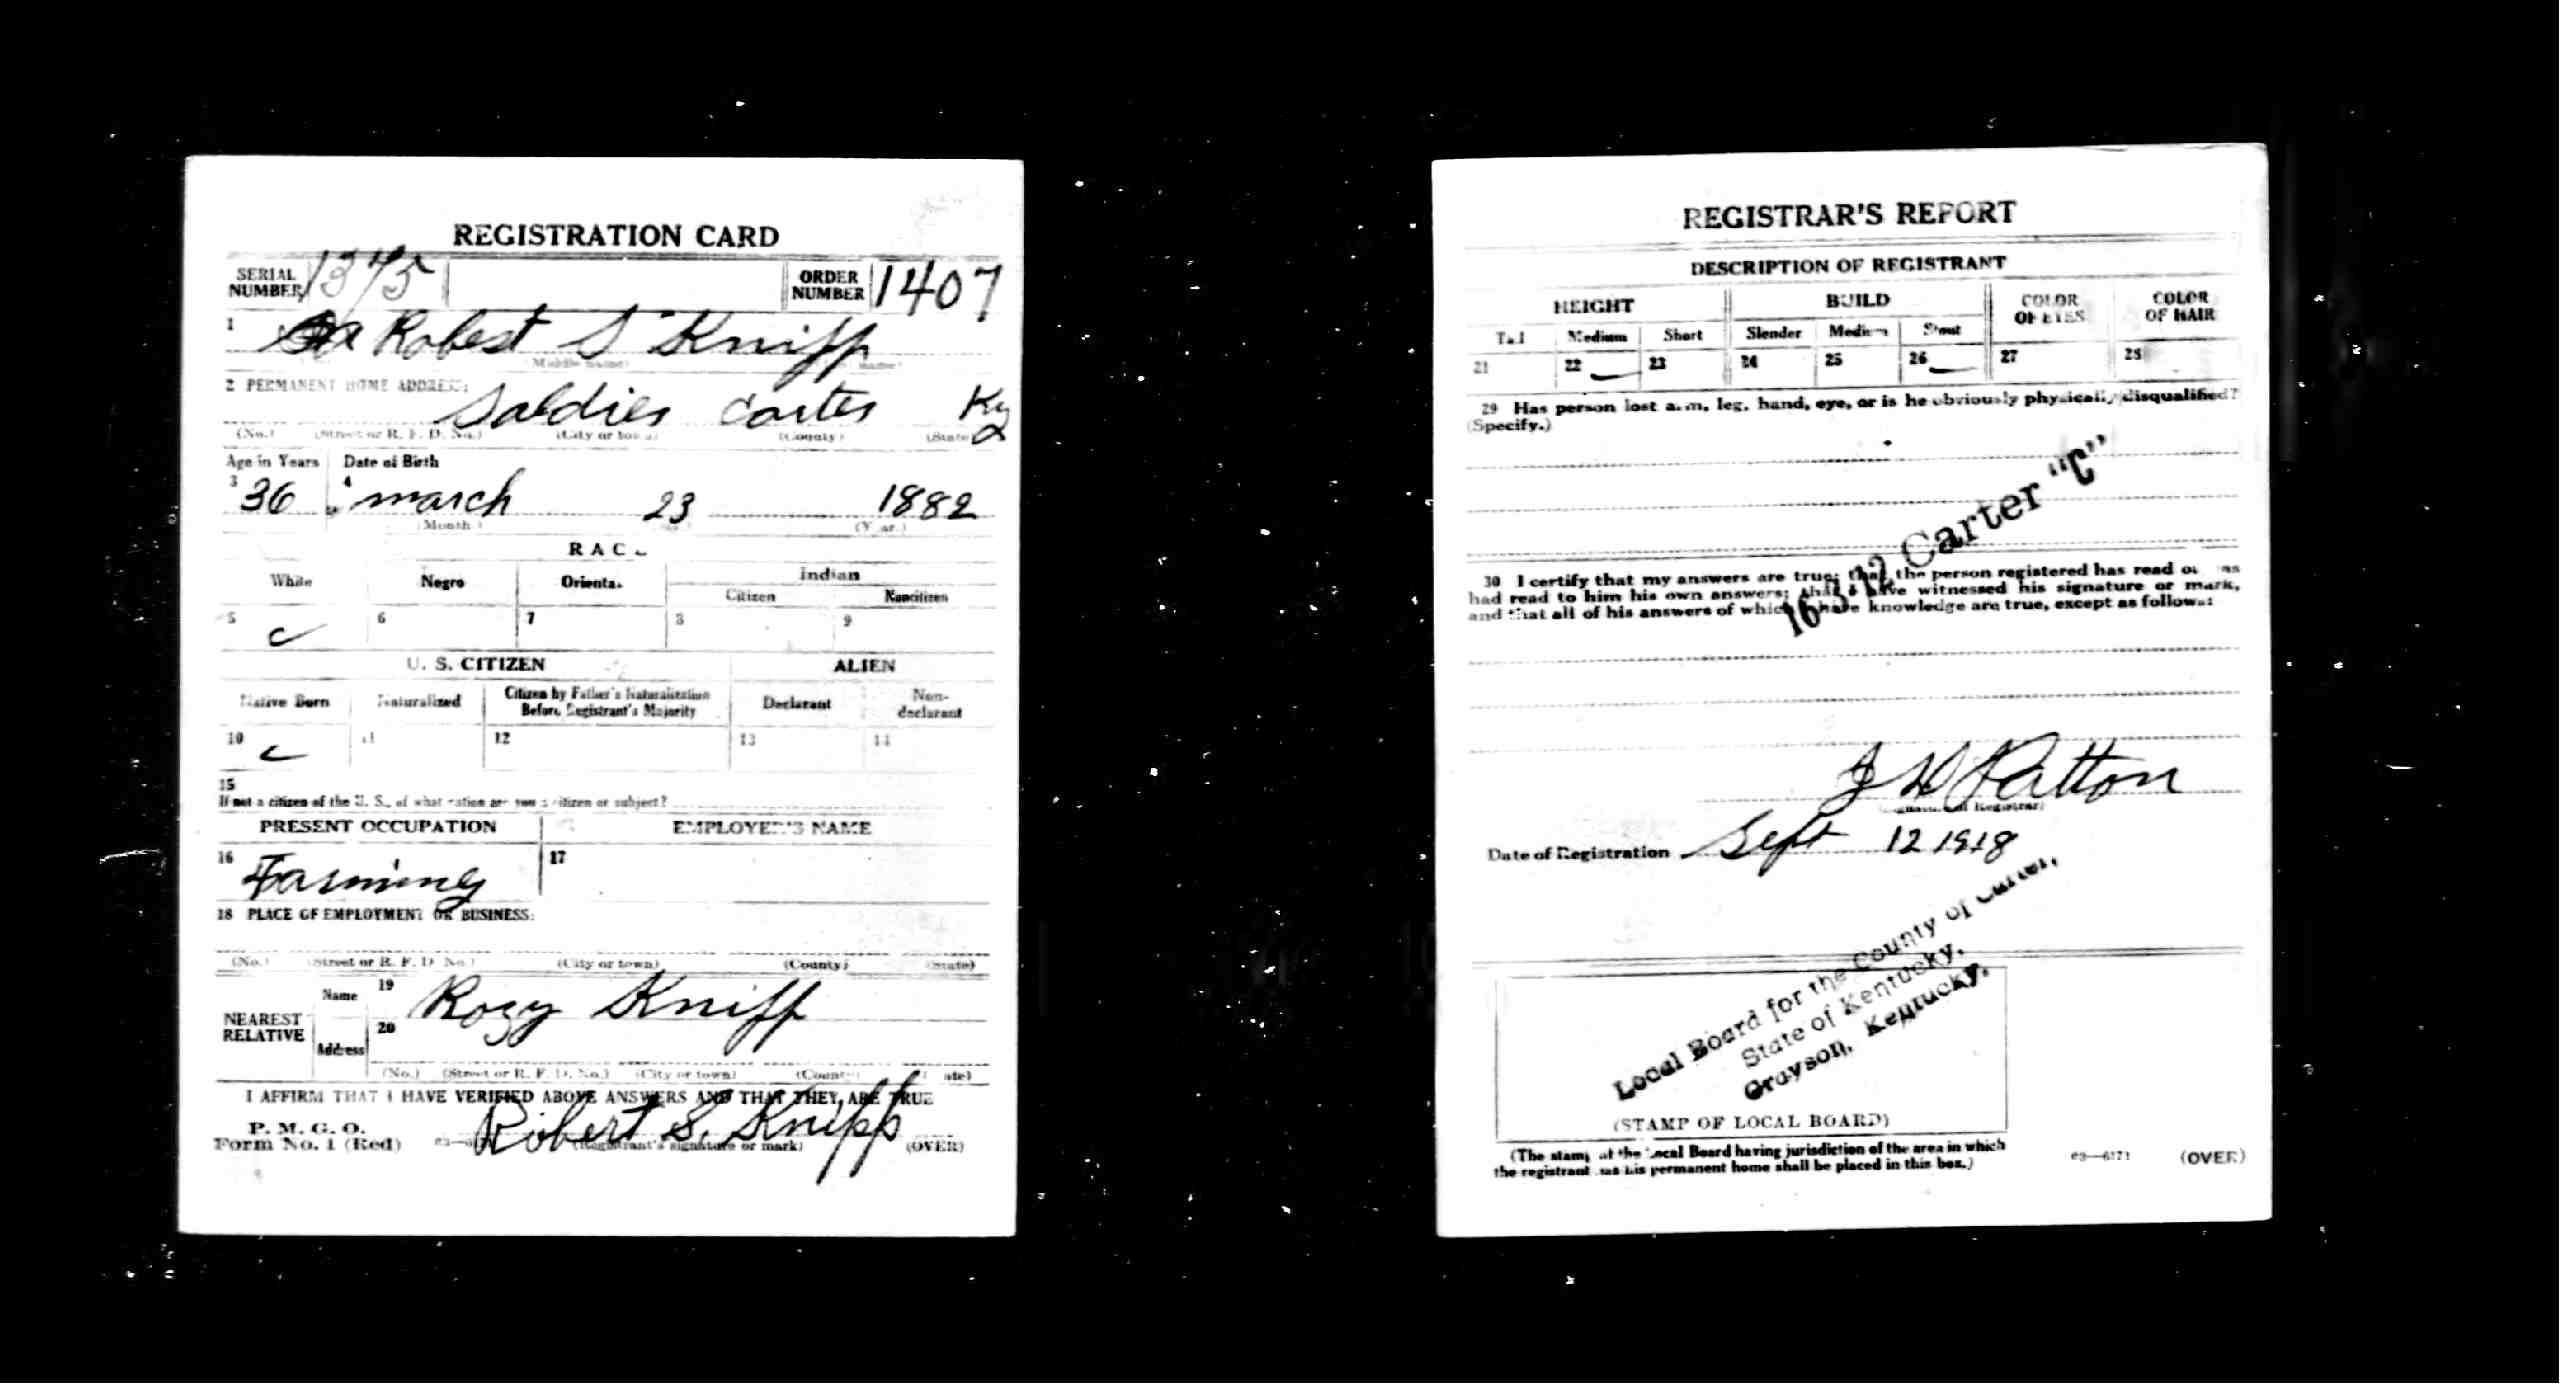 REGISTRATION CARD
SERIAL NUMBER 1375 ORDER NUMBER 1407
1 Robert S Knipp
2 PERMANENT HOME ADDRESS:
Carter Ky
(No.) (Street or R. F. D. No.) (City or town) (County) (State)
Age in Years Date of Birth
3 36 4 march 23 1882
(Month.) (Year.)
RACE
White Negro Oriental Indian
Citizen Noncitizen
5 6 7 8 9
U. S. CITIZEN ALIEN
Native Born Naturalized Citizen by Father's Naturalization Before Registrant's Majority Declarant Non-declarant
10 11 12 13 14
15
If not a citizen of the U. S., of what nation are you a citizen or subject?
PRESENT OCCUPATION EMPLOYER'S NAME
16 Farming 17
18 PLACE OF EMPLOYMENT OR BUSINESS:
(No.) (Street or R. F. D. No.) (City or town) (County) (State)
NEAREST RELATIVE Name 19 Rozy Knipp
Address 20
(No.) (Street or R. F. D. No.) (City or town) (County) (State)
I AFFIRM THAT I HAVE VERIFIED ABOVE ANSWERS AND THAT THEY ARE TRUE
P. M. G. O.
Form No. 1 (Red) Robert S. Knipp
(Registrant's signature or mark) (OVER)
REGISTRAR'S REPORT
DESCRIPTION OF REGISTRANT
HEIGHT BUILD COLOR OF EYES COLOR OF HAIR
Tall Medium Short Slender Medium Stout
21 22 23 24 25 26 27 28
29 Has person lost arm, leg, hand, eye, or is he obviously physically disqualified?
(Specify.)
16-3-12 Carter "C"
30 I certify that my answers are true; that the person registered has read or has
had read to him his own answers; that I have witnessed his signature or mark,
and that all of his answers of which I have knowledge are true, except as follows:
J W Patton
(Signature of Registrar)
Date of Registration Sept 12 1918
Local Board for the County of Carter,
State of Kentucky,
Grayson, Kentucky.
(STAMP OF LOCAL BOARD)
(The stamp of the Local Board having jurisdiction of the area in which
the registrant has his permanent home shall be placed in this box.)
63—6171 (OVER)